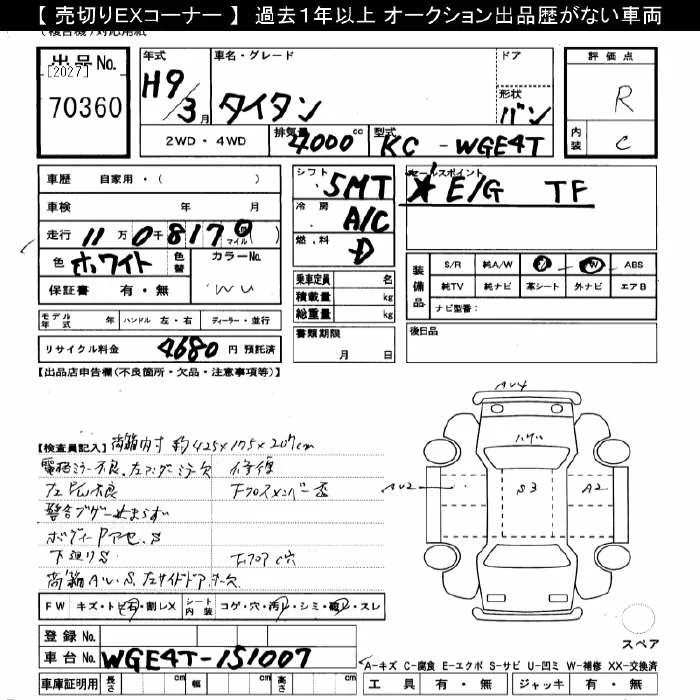 【 売切りEXコーナー 】 過去１年以上 オークション出品歴がない車両
出品No.
[2027]
70360
年式
H9/3月
車名・グレード
タイタン
ドア
形状
バン
評価点
R
内装
C
2WD・4WD
排気量
4000cc
型式
KC-WGE4T
車歴 自家用・( )
車検 年 月
走行 11万0千817 マイル( )
色 ホワイト
色替
カラーNo.
WU
保証書 有・無
シフト
5MT
冷房
A/C
燃料
D
乗車定員 名
積載量 kg
総重量 kg
セールスポイント
★E/G TF
装備品
S/R 純A/W ABS
純TV 純ナビ 革シート 外ナビ エアB
ナビ型番:
モデル年式 年 ハンドル 左・右 ディーラー・並行
リサイクル料金 4680 円 預託済
書類期限
月 日
後日品
【出品店申告欄(不良箇所・欠品・注意事項等)】
【検査員記入】荷箱内寸 約425×175×207cm
電格ミラー不良、左アンダーミラー欠 修復
左PW不良
警告ブザー止まらず
ボディーPアセ、S
下廻りS
荷箱AU、S、左サイドドア
AU4
AU2
S3
A2
FW キズ・トビ石・割レX シート内装 コゲ・穴・汚レ・シミ・破レ・スレ
登録No.
車台No. WGE4T-151007
スペア
A-キズ C-腐食 E-エクボ S-サビ U-凹ミ W-補修 XX-交換済
車庫証明用 長さ cm 幅 cm 高さ cm
工具 有・無 ジャッキ 有・無